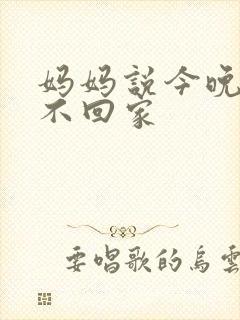 妈妈説今晚
不回家
要唱歌的烏雲